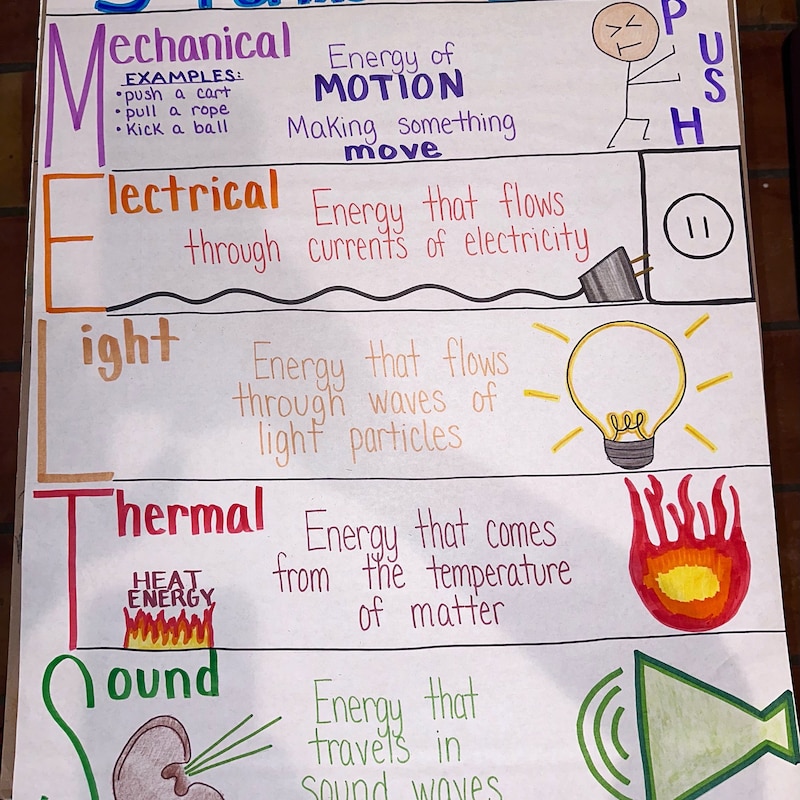 Mechanical
EXAMPLES:
• push a cart
• pull a rope
• Kick a ball
Energy of
MOTION
Making something
move
PUSH
Electrical
Energy that flows
through currents of electricity
Light
Energy that flows
through waves of
light particles
Thermal
HEAT
ENERGY
Energy that comes
from the temperature
of matter
Sound
Energy that
travels in
sound waves